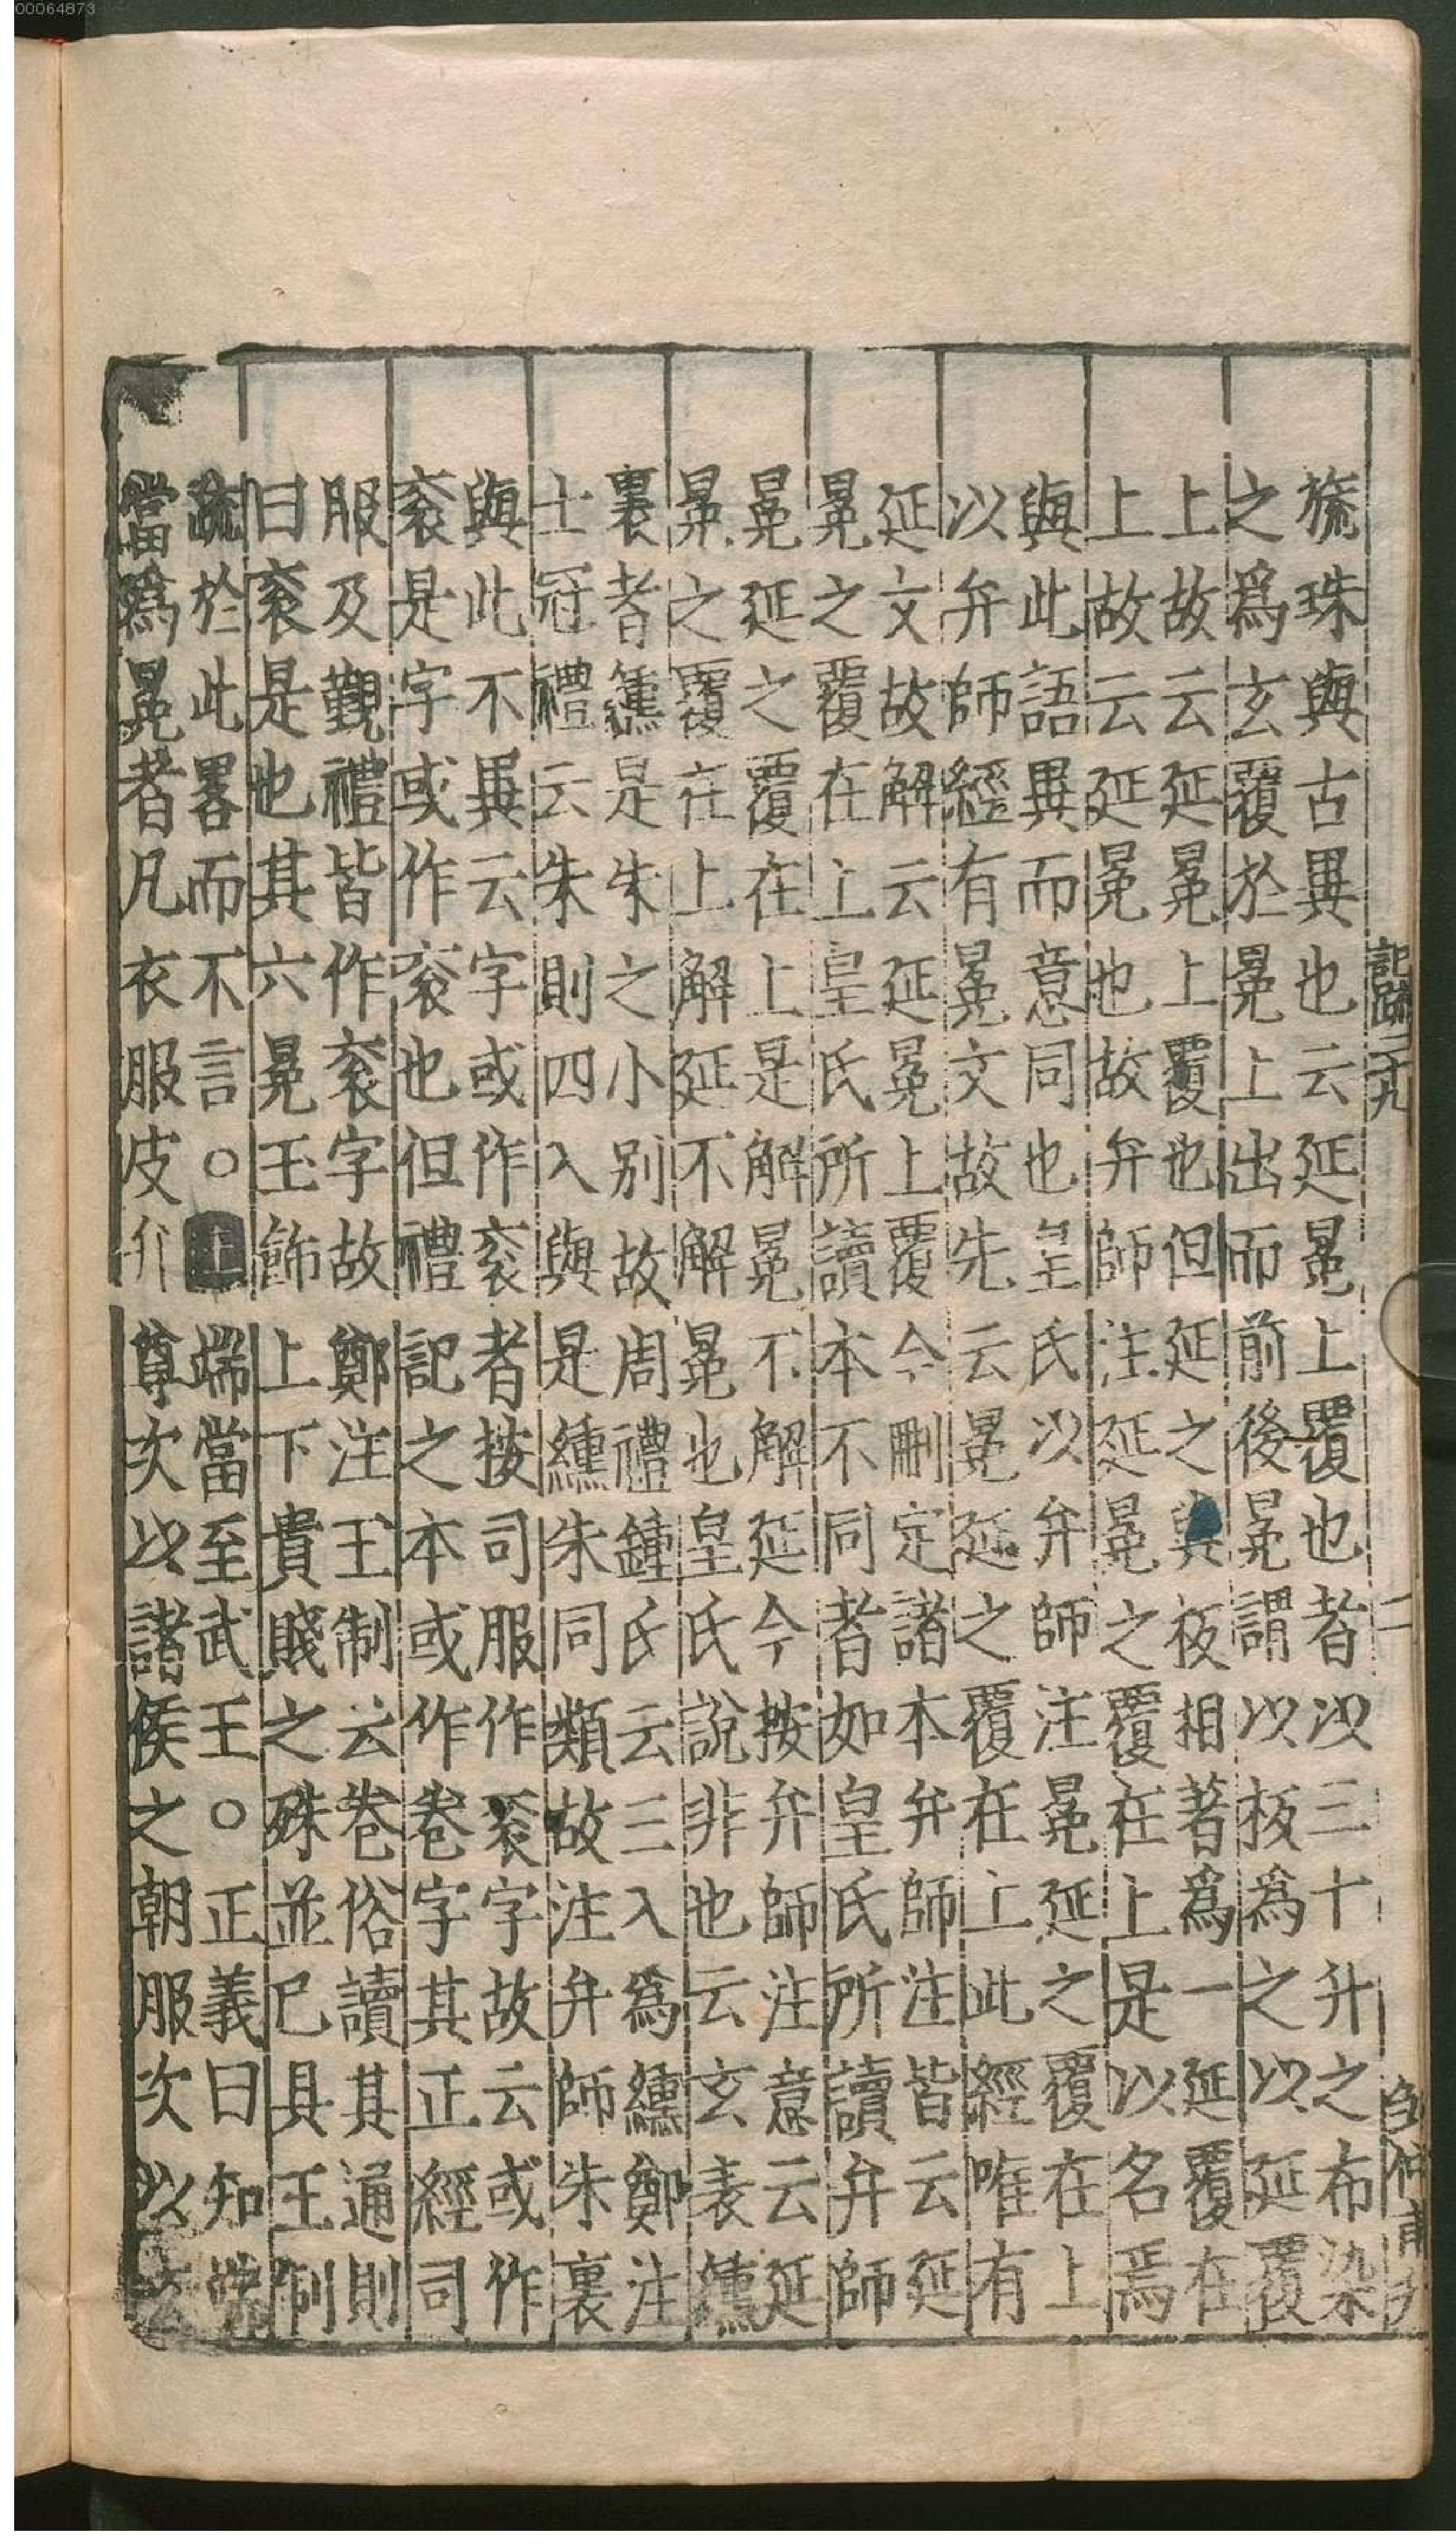 00064873
旒珠與古異也云延冕上覆也者以三十升之布染
之爲玄覆於冕上出而前後冕謂以板爲之以延覆
上故云延冕上覆也但延之與板相著爲一延覆在
上故云延冕也故弁師注延冕之覆在上是以名焉
與此語異而意同也皇氏以弁師注冕延之覆在上
以弁師經有冕文故先云冕延之覆在上此經唯有
延文故解云延冕上覆今刪定諸本弁師注皆云延
冕之覆在上皇氏所讀本不同者如皇氏所讀弁師
冕延之覆在上是解冕不解延今按弁師注意云延
冕之覆在上解延不解冕也皇氏說非也云玄表纁
裏者纁是朱之小别故周禮鍾氏云三入爲纁鄭注
士冠禮云朱則四入與是纁朱同類故注弁師朱裏
與此不異云字或作衮者按司服作衮字故云或作
衮是字或作衮也但禮記之本或作卷字其正經司
服及覲禮皆作衮字故鄭注王制云卷俗讀其通則
曰衮是也其六冕玉飾上下貴賤之殊並已具王制
疏於此畧而不言○ 上 端當至武王○正義曰知端
當爲冕者凡衣服皮弁尊次以諸侯之朝服次以
記疏二十九
二